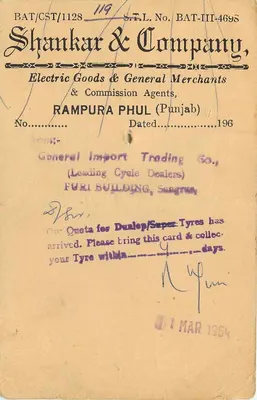 BAT/CST/1128 119 S.T.L. No. BAT-III-4698
Shankar & Company,
Electric Goods & General Merchants
& Commission Agents,
RAMPURA PHUL (Punjab)
No............ Dated..................196
General Import Trading Co.,
(Leading Cycle Dealers)
PURI BUILDING, Sangrur,
D/Sir,
Our Quota for Dunlop/Super Tyres has
arrived. Please bring this card & collec-
your Tyre within..............days.
1 MAR 1964